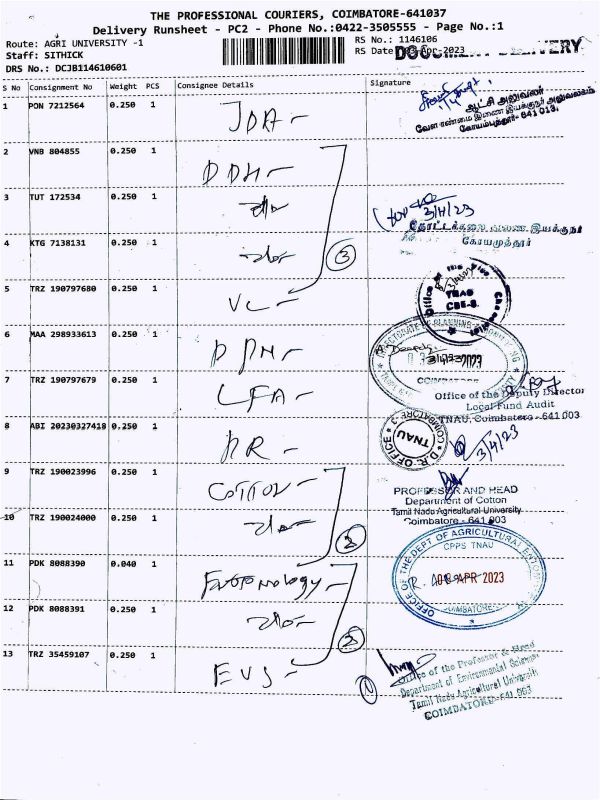 THE PROFESSIONAL COURIERS, COIMBATORE-641037
Delivery Runsheet - PC2 - Phone No.:0422-3505555 - Page No.:1
Route: AGRI UNIVERSITY -1
RS No.: 1146106
Staff: SITHICK
RS Date: 03-Apr-2023
DRS No.: DCJB114610601
DOCUMENT DELIVERY
S No Consignment No Weight PCS Consignee Details Signature
1 PON 7212564 0.250 1 JDA
ஆட்சி அலுவலர்
வேளாண்மை இணை இயக்குநர் அலுவலகம்
கோயம்புத்தூர்-641 013.
2 VNB 804855 0.250 1 DDH
3 TUT 172534 0.250 1
3/4/23
தோட்டக்கலை துணை இயக்குநர்
கோயமுத்தூர்
4 KTG 7138131 0.250 1
3
5 TRZ 190797680 0.250 1 VC
Office of the Vice Chancellor
TNAU
CBE-3.
6 MAA 298933613 0.250 1
DIRECTORATE OF PLANNING
COIMBATORE
7 TRZ 190797679 0.250 1 LFA
Office of the Deputy Director
Local Fund Audit
TNAU, Coimbatore - 641 003
8 ABI 20230327418 0.250 1
D.R. OFFICE
TNAU
COIMBATORE-3
3/4/23
9 TRZ 190023996 0.250 1 COTTON
PROFESSOR AND HEAD
Department of Cotton
Tamil Nadu Agricultural University
Coimbatore - 641 003
10 TRZ 190024000 0.250 1
2
11 PDK 8088390 0.040 1 Entomology
OFFICE OF THE DEPT OF AGRICULTURAL ENTOMOLOGY
CPPS TNAU
03 APR 2023
COIMBATORE
12 PDK 8088391 0.250 1
2
13 TRZ 35459107 0.250 1 EVS
1
Office of the Professor & Head
Department of Environmental Sciences
Tamil Nadu Agricultural University
COIMBATORE-641 003